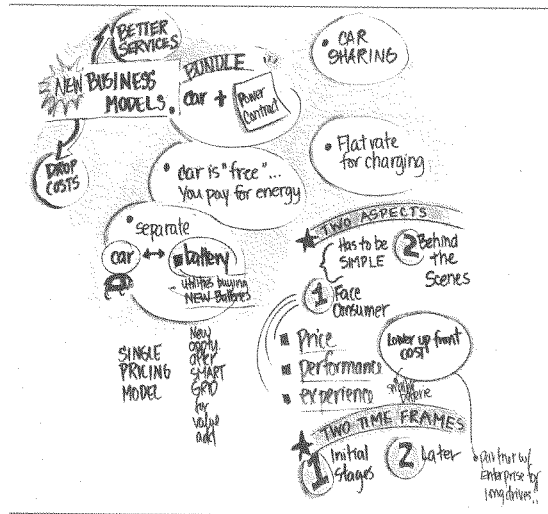 BETTER
SERVICES
NEW BUSINESS
MODELS.
DROP
COSTS
BUNDLE
car +
Power
Contract
• CAR
SHARING
• car is "free"...
You pay for energy
• Flat rate
for charging
• separate
car ↔ battery
utilities buying
NEW Batteries
SINGLE
PRICING
MODEL
New
SMART
GRID
for
value
add
TWO ASPECTS
Has to be
SIMPLE
1 Face
Consumer
2 Behind
the
Scenes
Price
Performance
experience
Lower up front
COST
TWO TIME FRAMES
1 Initial
Stages
2 Later
• partner w/
Enterprise for
long drives..